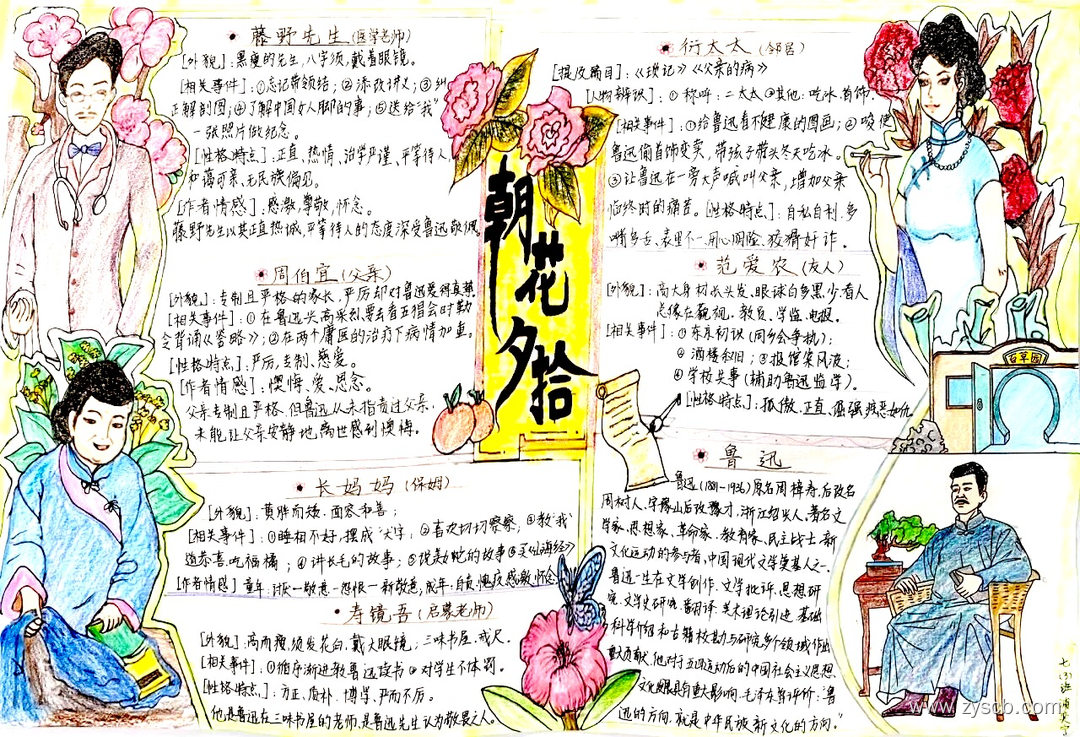 藤野先生(医学老师)
[外貌]:黑瘦的先生,八字须,戴着眼镜。
[相关事件]:①忘记带领结;②添改讲义;③纠
正解剖图;④了解中国女人脚的事;⑤送给"我"
一张照片做纪念。
[性格特点]:正直,热情,治学严谨,平等待人,
和蔼可亲,无民族偏见。
[作者情感]:感激,尊敬,怀念。
藤野先生以其正直热诚,平等待人的态度深受鲁迅敬佩
周伯宜(父亲)
[外貌]:专制且严格的家长,严厉却对鲁迅爱得真挚
[相关事件]:①在鲁迅兴高采烈要去看五猖会时勒
令背诵《鉴略》;②在两个庸医的治疗下病情加重。
[性格特点]:严厉,专制,慈爱。
[作者情感]:懊悔、爱、思念。
父亲专制且严格,但鲁迅从未指责过父亲,
未能让父亲安静地离世感到懊悔。
长妈妈(保姆)
[外貌]:黄胖而矮,面容和善;
[相关事件]:①睡相不好,摆成"大"字;②喜欢切切察察;③教"我"
道恭喜,吃福橘;④讲长毛的故事;⑤说美女蛇的故事⑥买《山海经》
[作者情感]童年:讨厌一敬意一怨恨一新敬意,成年:自责愧疚感激怀念
寿镜吾(启蒙老师)
[外貌]:高而瘦,须发花白,戴大眼镜;三味书屋,戒尺.
[相关事件]:①循序渐进教鲁迅读书②对学生不体罚。
[性格特点]:方正、质朴、博学、严而不厉。
他是鲁迅在三味书屋的老师,是鲁迅先生认为敬畏之人。
朝花夕拾
衍太太(邻居)
[提及篇目]:《琐记》《父亲的病》
[人物辨识]:①称呼:二太太②其他:吃冰、首饰.
[相关事件]:①给鲁迅看不健康的图画;②唆使
鲁迅偷首饰变卖,带孩子带头冬天吃冰。
③让鲁迅在一旁大声喊叫父亲,增加父亲
临终时的痛苦。[性格特点]:自私自利、多
嘴多舌、表里不一、用心阴险、狡猾奸诈。
范爱农(友人)
[外貌]:高大身材,长头发、眼球白多黑少,看人
总像在藐视。教员、学监、电报。
[相关事件]:①东京初识(同乡会争执);
②酒楼叙旧;③报馆案风波;
④学校共事(辅助鲁迅监学)。
[性格特点]:孤傲、正直、倔强、疾恶如仇
百草园
鲁迅
鲁迅(1881-1936)原名周樟寿,后改名
周树人,字豫山后改豫才,浙江绍兴人。著名文
学家、思想家、革命家、教育家、民主战士,新
文化运动的参与者,中国现代文学奠基人之一。
鲁迅一生在文学创作、文学批评、思想研
究、文学史研究、翻译、美术理论引进、基础
科学介绍和古籍校勘与研究多个领域作出
重大贡献。他对于五四运动后的中国社会主义思想
文化发展具有重大影响。毛泽东曾评价:"鲁
迅的方向,就是中华民族新文化的方向。"
七(3)班
www.zyscb.com